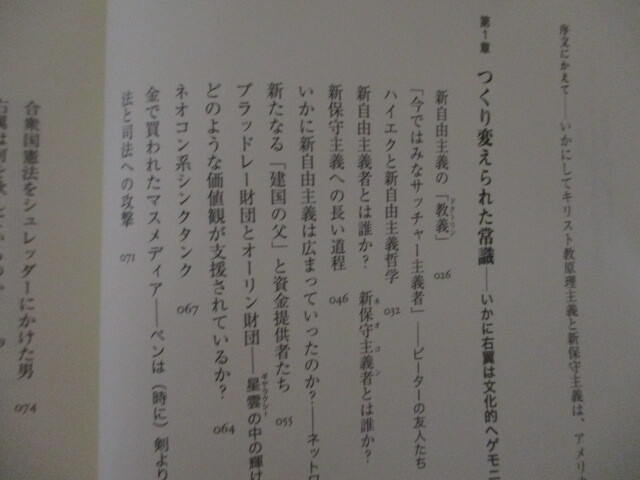 序文にかえて——いかにしてキリスト教原理主義と新保守主義は、アメリカ
第1章 つくり変えられた常識——いかに右翼は文化的ヘゲモニ
新自由主義の「教義」 026
ドクトリン
「今ではみなサッチャー主義者」——ピーターの友人たち
ハイエクと新自由主義哲学 032
新自由主義者とは誰か? 新保守主義者とは誰か?
ネオコン
新保守主義への長い道程 046
いかに新自由主義は広まっていったのか?——ネットワ
新たなる「建国の父」と資金提供者たち 055
ブラッドレー財団とオーリン財団——星雲の中の輝け
ギャラクシー
どのような価値観が支援されているか? 064
ネオコン系シンクタンク 067
金で買われたマスメディア——ペンは(時に)剣より
法と司法への攻撃 071
合衆国憲法をシュレッダーにかけた男 074